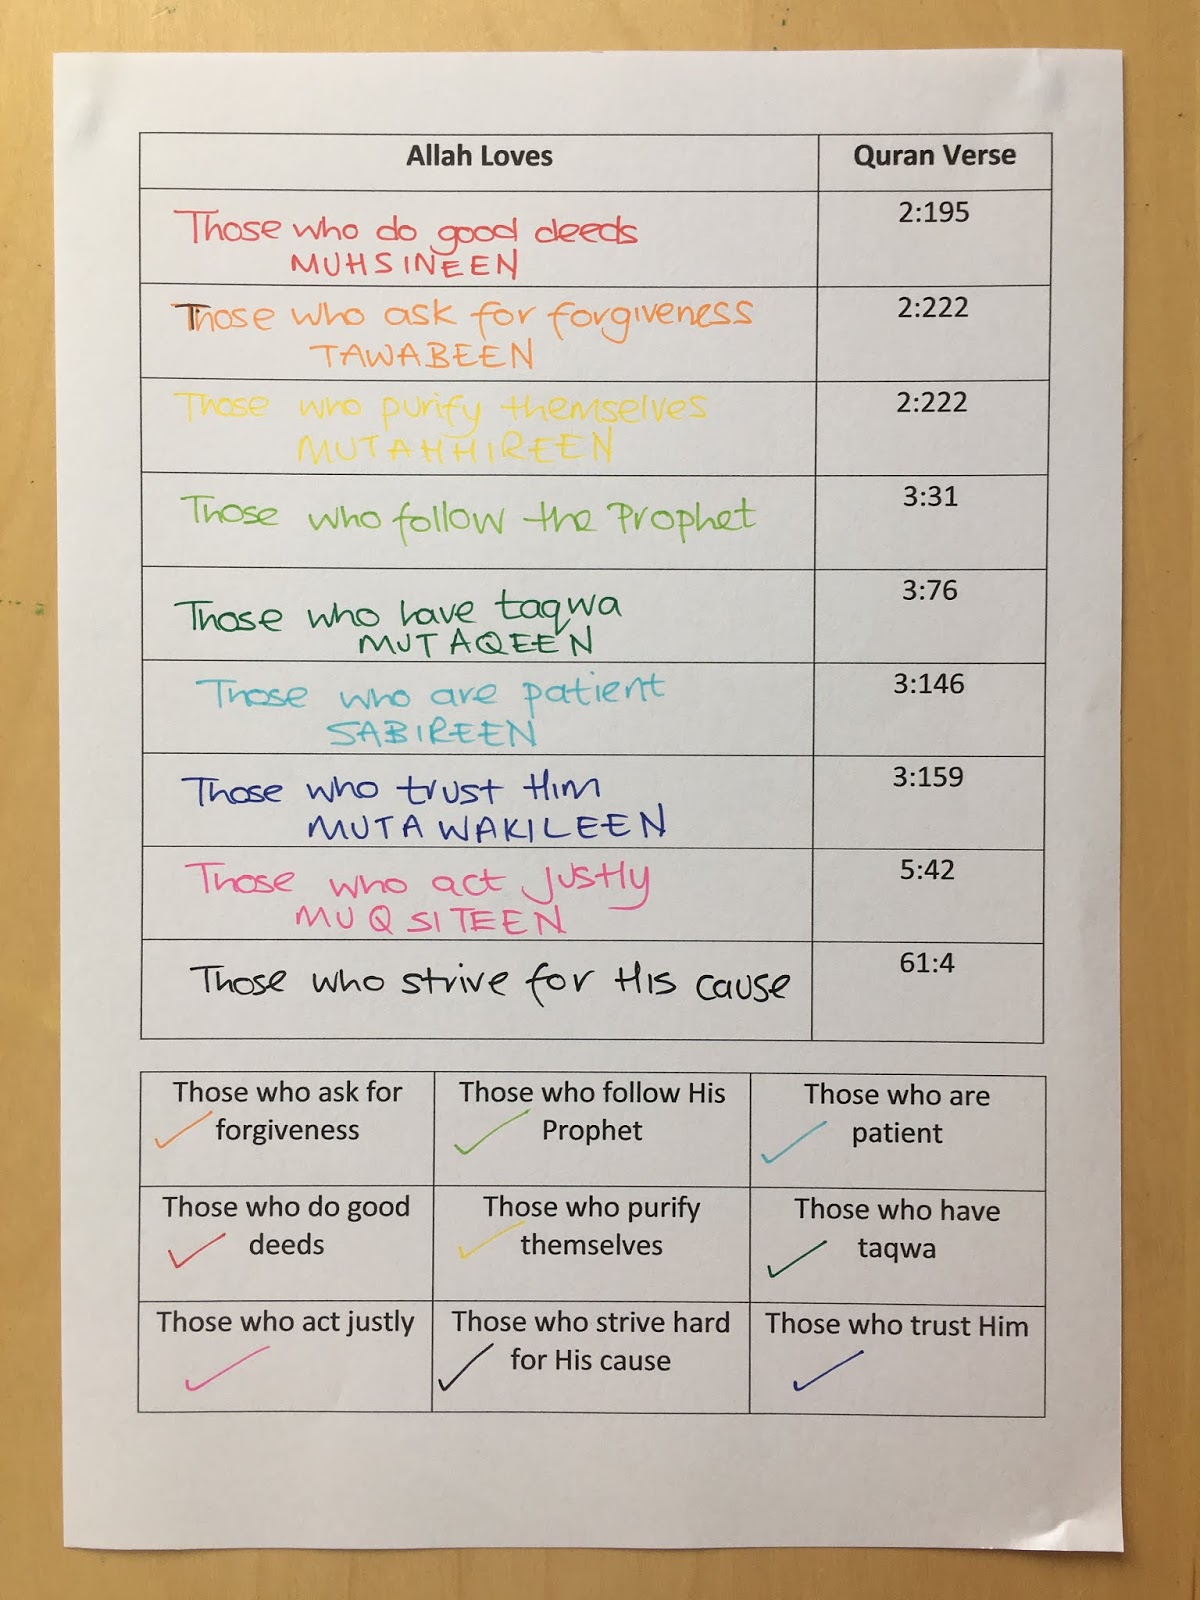 Allah Loves Quran Verse
Those who do good deeds 2:195
MUHSINEEN
Those who ask for forgiveness 2:222
TAWABEEN
Those who purify themselves 2:222
MUTAHHIREEN
Those who follow the Prophet 3:31
Those who have taqwa 3:76
MUTAQEEN
Those who are patient 3:146
SABIREEN
Those who trust Him 3:159
MUTAWAKILEEN
Those who act justly 5:42
MUQSITEEN
Those who strive for His cause 61:4
Those who ask for
forgiveness
Those who follow His
Prophet
Those who are
patient
Those who do good
deeds
Those who purify
themselves
Those who have
taqwa
Those who act justly
Those who strive hard
for His cause
Those who trust Him